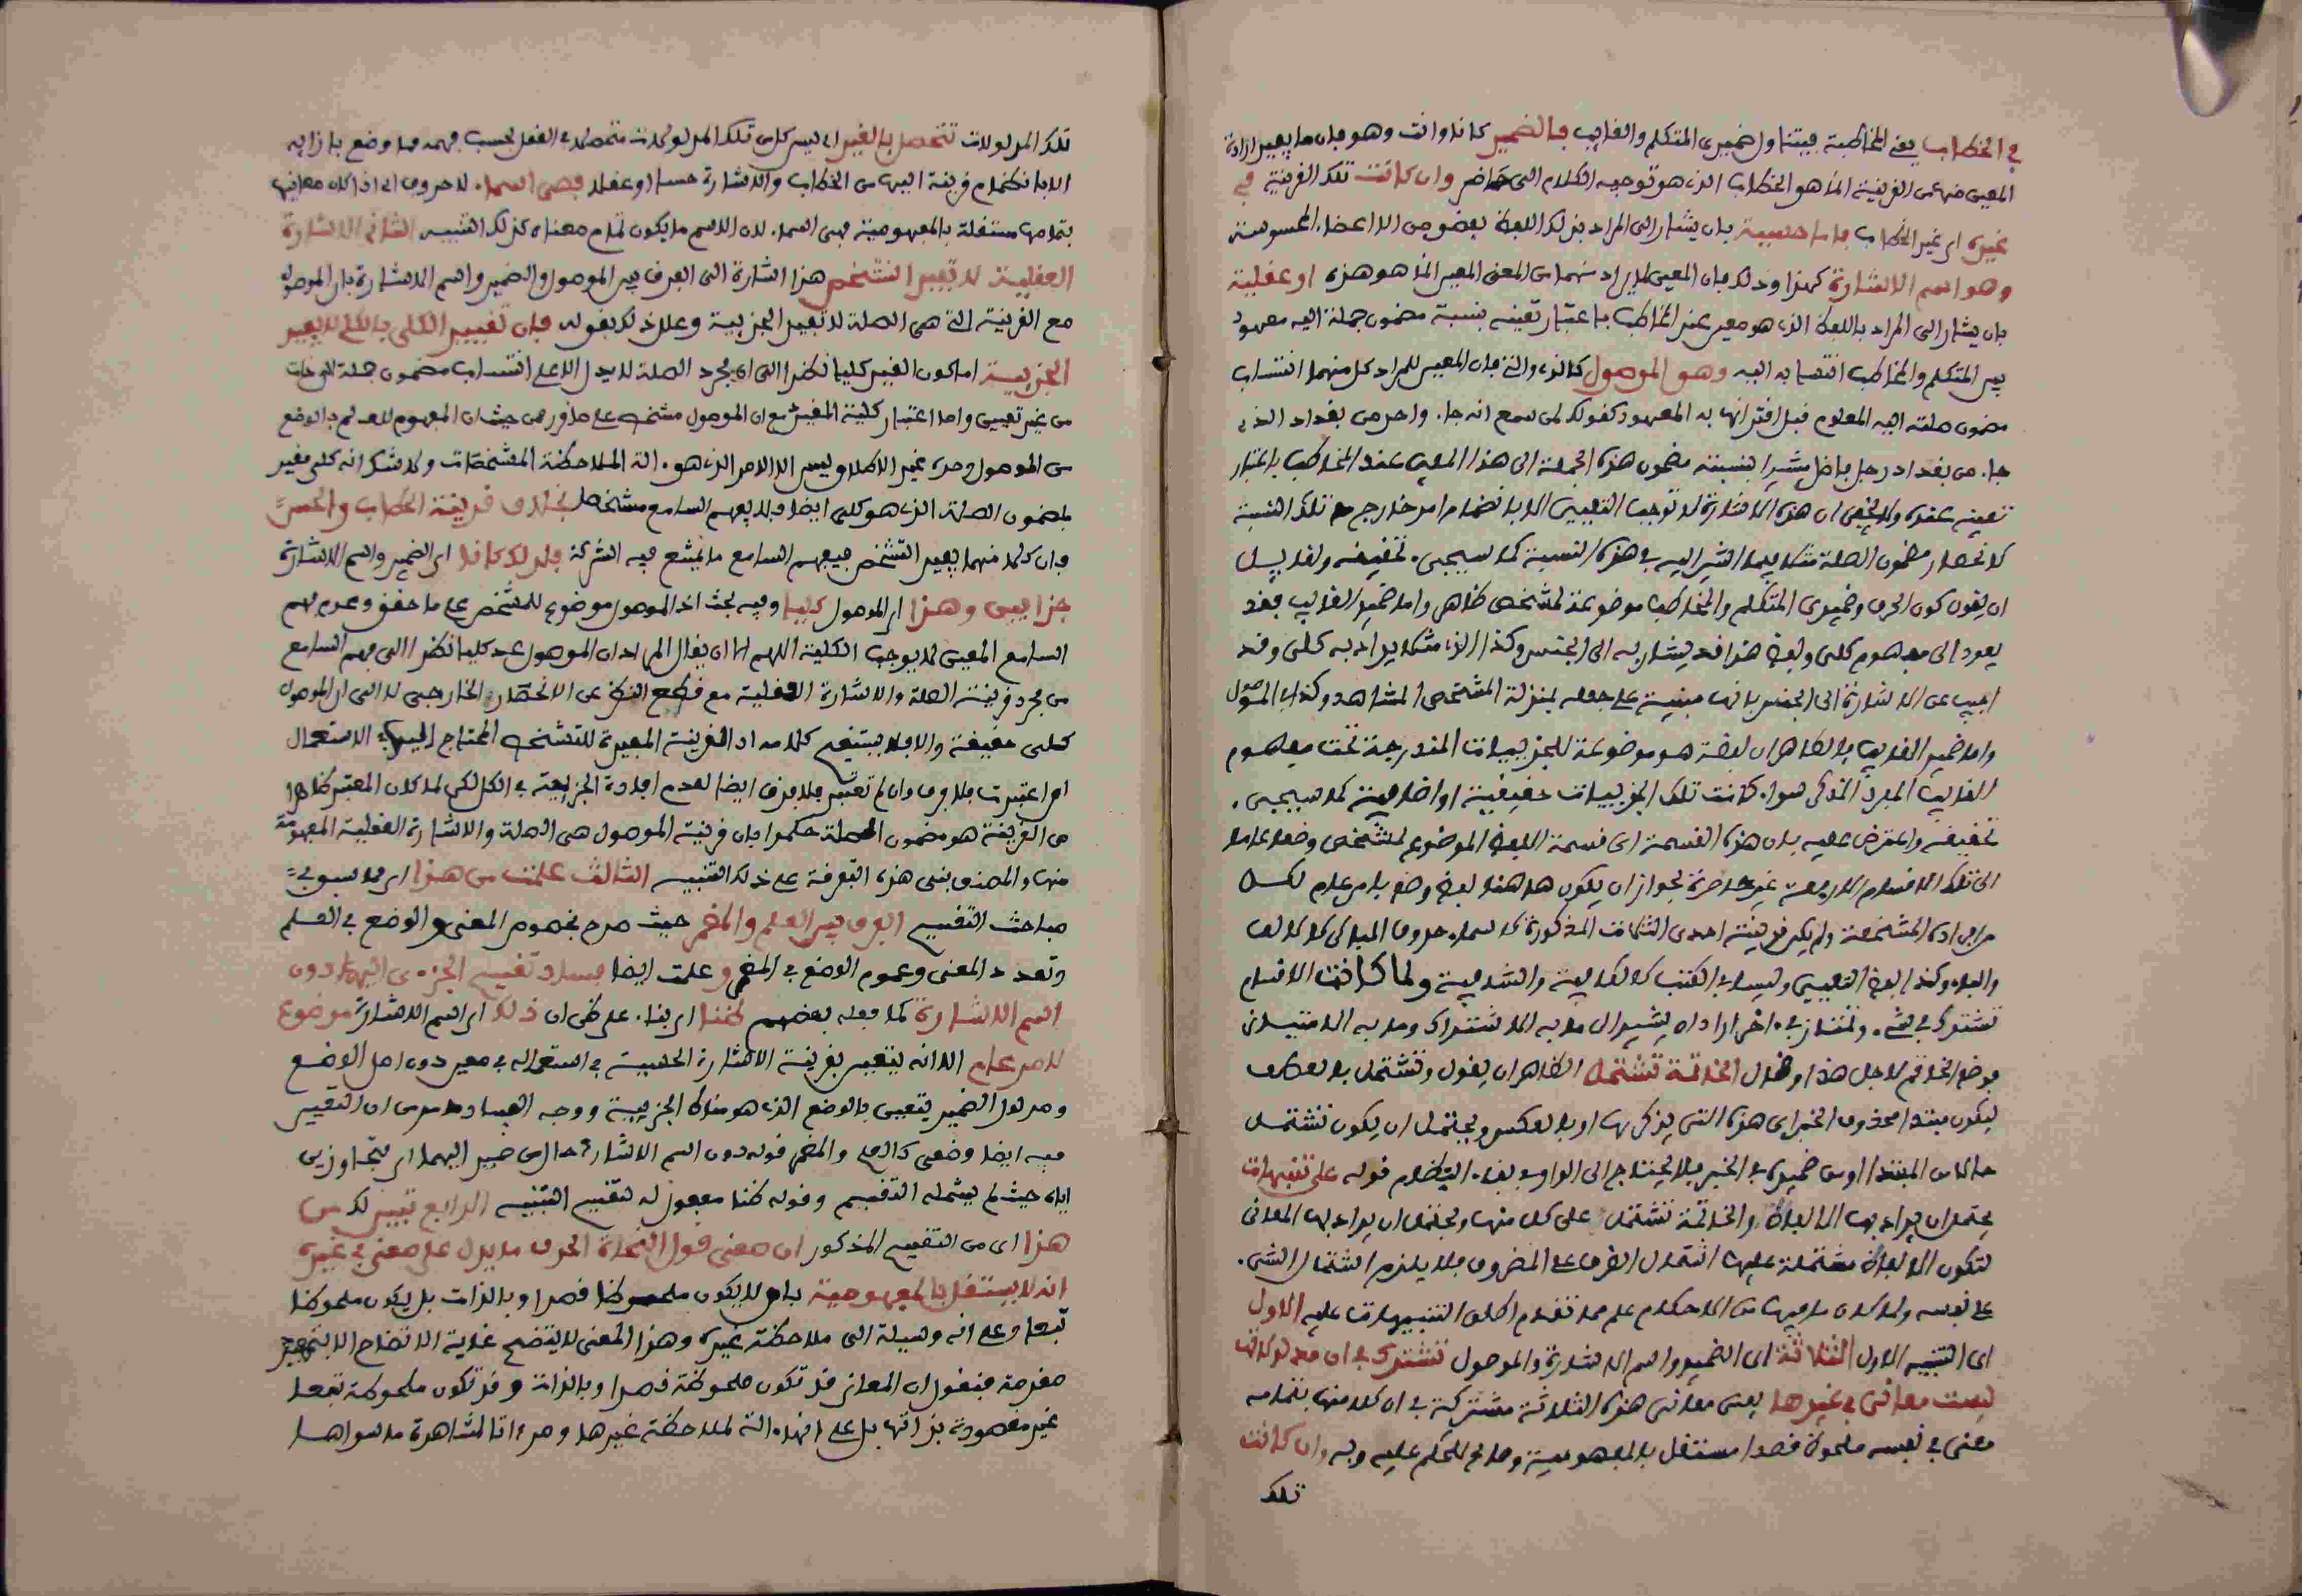 في الخطاب يعني المخاطبة فيتناول ضميري المتكلم والغايب فالضمير كانا وانت وهو فان ما يعين ارادة
المعين منها من القرينة انما هو الخطاب الذي هو توجيه الكلام الى حاضر وان كانت تلك القرينة في
غيره اي غير الخطاب فاما حسية بان يشار الى المراد بذلك اللفظ بعضو من الاعضاء المحسوسة
وهو اسم الاشارة كهذا وذلك فان المعين لما يراد منهما من المعنى المعين انما هو هذه او عقلية
بان يشار الى المراد باللفظ الذي هو معين عند المخاطب باعتبار تعينه بنسبة مضمون جملة اليه معهود
بين المتكلم والمخاطب انتسابه اليه وهو الموصول كالذي والتي فان المعين للمراد كل منهما انتساب
مضمون صلته اليه المعلوم قبل اقترانها به المعهود كقولك لمن سمع انه جاء واحد من بغداد الذي
جاء من بغداد رجل فاضل مشيرا بنسبة مضمون هذه الجملة الى هذا المعين عند المخاطب باعتبار
تعينه عنده ولا يخفى ان هذه الاشارة لا توجب التعيين الا بانضمام امر خارج من تلك النسبة
كانحصار مضمون الصلة مثلا فيما اشير اليه في هذه النسبة كما سيجيء تحقيقه ولقايل
ان يقول كون الحرف وضميري المتكلم والمخاطب موضوعة لمشخص ظاهر واما ضمير الغايب فقد
يعود الى مفهوم كلي ولفظ هذا قد يشار به الى الجنس وكذا الذي مثلا يراد به كلي وقد
اجيب عن الاشارة الى الجنس بانها مبنية على جعله بمنزلة المشخص المشاهد وكذا الموصول
واما ضمير الغايب فالظاهر ان لفظة هو موضوعة للجزييات المندرجة تحت مفهوم
الغايب المفرد المذكر سواء كانت تلك الجزييات حقيقية او اضافية كما سيجيء
تحقيقه واعترض عليه بان هذه القسمة اي قسمة اللفظ الموضوع لمشخص وضعا عاما
الى تلك الاقسام الاربعة غير حاصرة لجواز ان يكون هاهنا لفظ وضع بامر عام لكل
من افراده المشخصة ولم يكن قرينته احدى الثلاث المذكورة كاسماء حروف المباني كالالف
والباء وكذا لفظ التعيين واسماء الكتب كالكافية والشافية ولما كانت الاقسام
تشترك في شيء وتمتاز في اخر اراد ان يشير الى ما به الاشتراك وما به الامتياز
فوضع الخاتمة لاجل هذا وقال الخاتمة تشتمل الظاهر ان يقول وتشتمل بالعطف
ليكون مبتدا محذوف الخبر اي هذه التي يذكرها او بالعكس ويحتمل ان يكون تشتمل
حالا من المبتدا او من ضميره في الخبر فلا يحتاج الى الواو لبقاء النظام قوله على تنبيهات
يحتمل ان يراد بها الالفاظ والخاتمة تشتمل على كل منها ويحتمل ان يراد بها المعاني
لتكون الالفاظ مشتملة عليها اشتمال الظرف على المظروف فلا يلزم اشتمال الشيء
على نفسه ولما كان ما فيها من الاحكام علم مما تقدم اطلق التنبيهات عليه الاول
اي التنبيه الاول الثلاثة اي الضمير واسم الاشارة والموصول تشترك في ان مدلولاتها
ليست معاني في غيرها يعني معاني هذه الثلاثة مشتركة في ان كلا منها بتمامه
معنى في نفسه ملحوظ قصدا مستقل بالمفهومية وصالح للحكم عليه وبه وان كانت
تلك
تلك المدلولات تتحصل بالغير اي ليس كل من تلك المدلولات متحصلا في العقل بحسب فهمه مما وضع بازايه
الا بانضمام قرينة اليها من الخطاب والاشارة حسا او عقلا فهي اسماء لا حروف اي اذا كان معانيها
بتمامها مستقلة بالمفهومية فهي اسماء لان الاسم ما يكون تمام معناه كذلك التنبيه الثاني الاشارة
العقلية لا تفيد التشخص هذا اشارة الى الفرق بين الموصول والضمير واسم الاشارة بان الموصول
مع القرينة التي هي الصلة لا تفيد الجزيية وعلل ذلك بقوله فان تقييد الكلي بالكلي لا يفيد
الجزيية اما كون القيد كليا نظرا الى ان مجرد الصلة لا يدل الا على انتساب مضمون جملة الى ذات
من غير تعيين واما اعتبار كلية المقيد مع ان الموصول مشخص على ما قرر فمن حيث ان المفهوم للعالم بالوضع
من الموصول وحده غير الاصلا وليس الا الامر الذي هو الة الملاحظة المشخصات ولا شك انه كلي مقيد
بمضمون الصلة الذي هو كلي ايضا فلا يفهم السامع مشخصا بخلاف قرينة الخطاب والحس
فان كلا منهما يفيد التشخص فيفهم السامع ما يمنع فيه الشركة فلذلك كانا اي الضمير واسم الاشارة
جزاييى وهذا اي الموصول كليا وفيه بحث اذ الموصول موضوع للمشخص على ما حقق وعدم فهم
السامع المعين لا يوجب الكلية اللهم الا ان يقال المراد ان الموصول عد كليا نظرا الى فهم السامع
من مجرد قرينة الصلة والاشارة العقلية مع قطع النظر عن الانحصار الخارجي لا الى ان الموصول
كلي حقيقة والا فلا يستقيم كلامه اذ القرينة المفيدة للتشخص المحتاج اليها في الاستعمال
ان اعتبرت فلا فرق وان لم تعتبر فلا فرق ايضا لعدم افادة الجزيية في الكل لكن لما كان المعتبر ظاهرا
من القرينة هو مضمون الصلة حكموا بان قرينة الموصول هي الصلة والاشارة العقلية المفهومة
منها والمصنف بنى هذه التفرقة على ذلك التنبيه الثالث علمت من هذا اي مما سبق في
مباحث التقسيم الفرق بين العلم والمضمر حيث صرح بخصوص المعنى والوضع في العلم
وتعدد المعنى وعموم الوضع في المضمر وعلمت ايضا فساد تقسيم الجزءى اليهما دون
اسم الاشارة كما فعله بعضهم ظنا اي بناء على ظن ان ذلك اي اسم الاشارة موضوع
لامر عام الا انه يتعين بقرينة الاشارة الحسية في استعماله في معين دون اصل الوضع
ومدلول الضمير يتعين بالوضع الذي هو مناط الجزيية ووجه الفساد ما مر من ان التعيين
فيه ايضا وضعي كالعلم والمضمر قوله دون اسم الاشارة حال من ضمير اليهما اي متجاوزين
اياه حيث لم يشمله التقسيم وقوله ظنا مفعول له لتقسيم التنبيه الرابع تبين لك من
هذا اي من التقسيم المذكور ان معنى قول النحاة الحرف ما يدل على معنى في غيره
انه لا يستقل بالمفهومية بان لا يكون ملحوظا قصدا وبالذات بل يكون ملحوظا
تبعا وعلى انه وسيلة الى ملاحظة غيره وهذا المعنى لا يتضح غاية الاتضاح الا بتمهيد
مقدمة فنقول ان المعاني قد تكون ملحوظة قصدا وبالذات وقد تكون ملحوظة تبعا
غير مقصودة بذاتها بل على انها الة لملاحظة غيرها ومرءاة لمشاهدة ما سواها